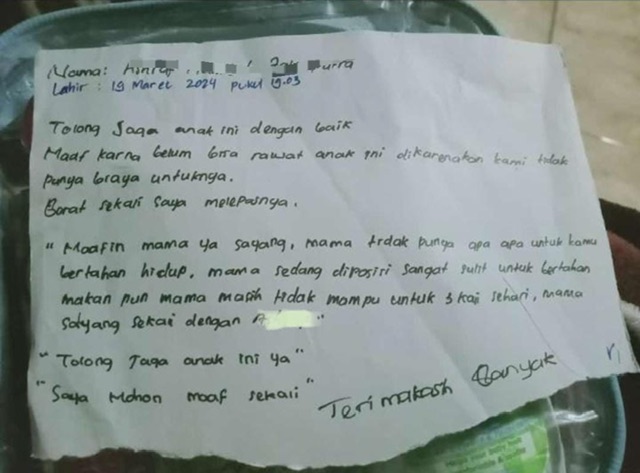 Nama:
Lahir : 19 Maret 2024 Pukul 19.03
Tolong Jaga anak ini dengan baik
Maaf karna belum bisa rawat anak ini dikarenakan kami tidak
punya biaya untuknya.
Berat sekali saya melepasnya.
" Maafin mama ya sayang, mama tidak punya apa apa untuk kamu
bertahan hidup, mama sedang diposisi sangat sulit untuk bertahan
makan pun mama masih tidak mampu untuk 3 kali sehari, mama
sayang sekali dengan A "
" Tolong Jaga anak ini ya "
" Saya Mohon maaf sekali "
Terimakasih Banyak